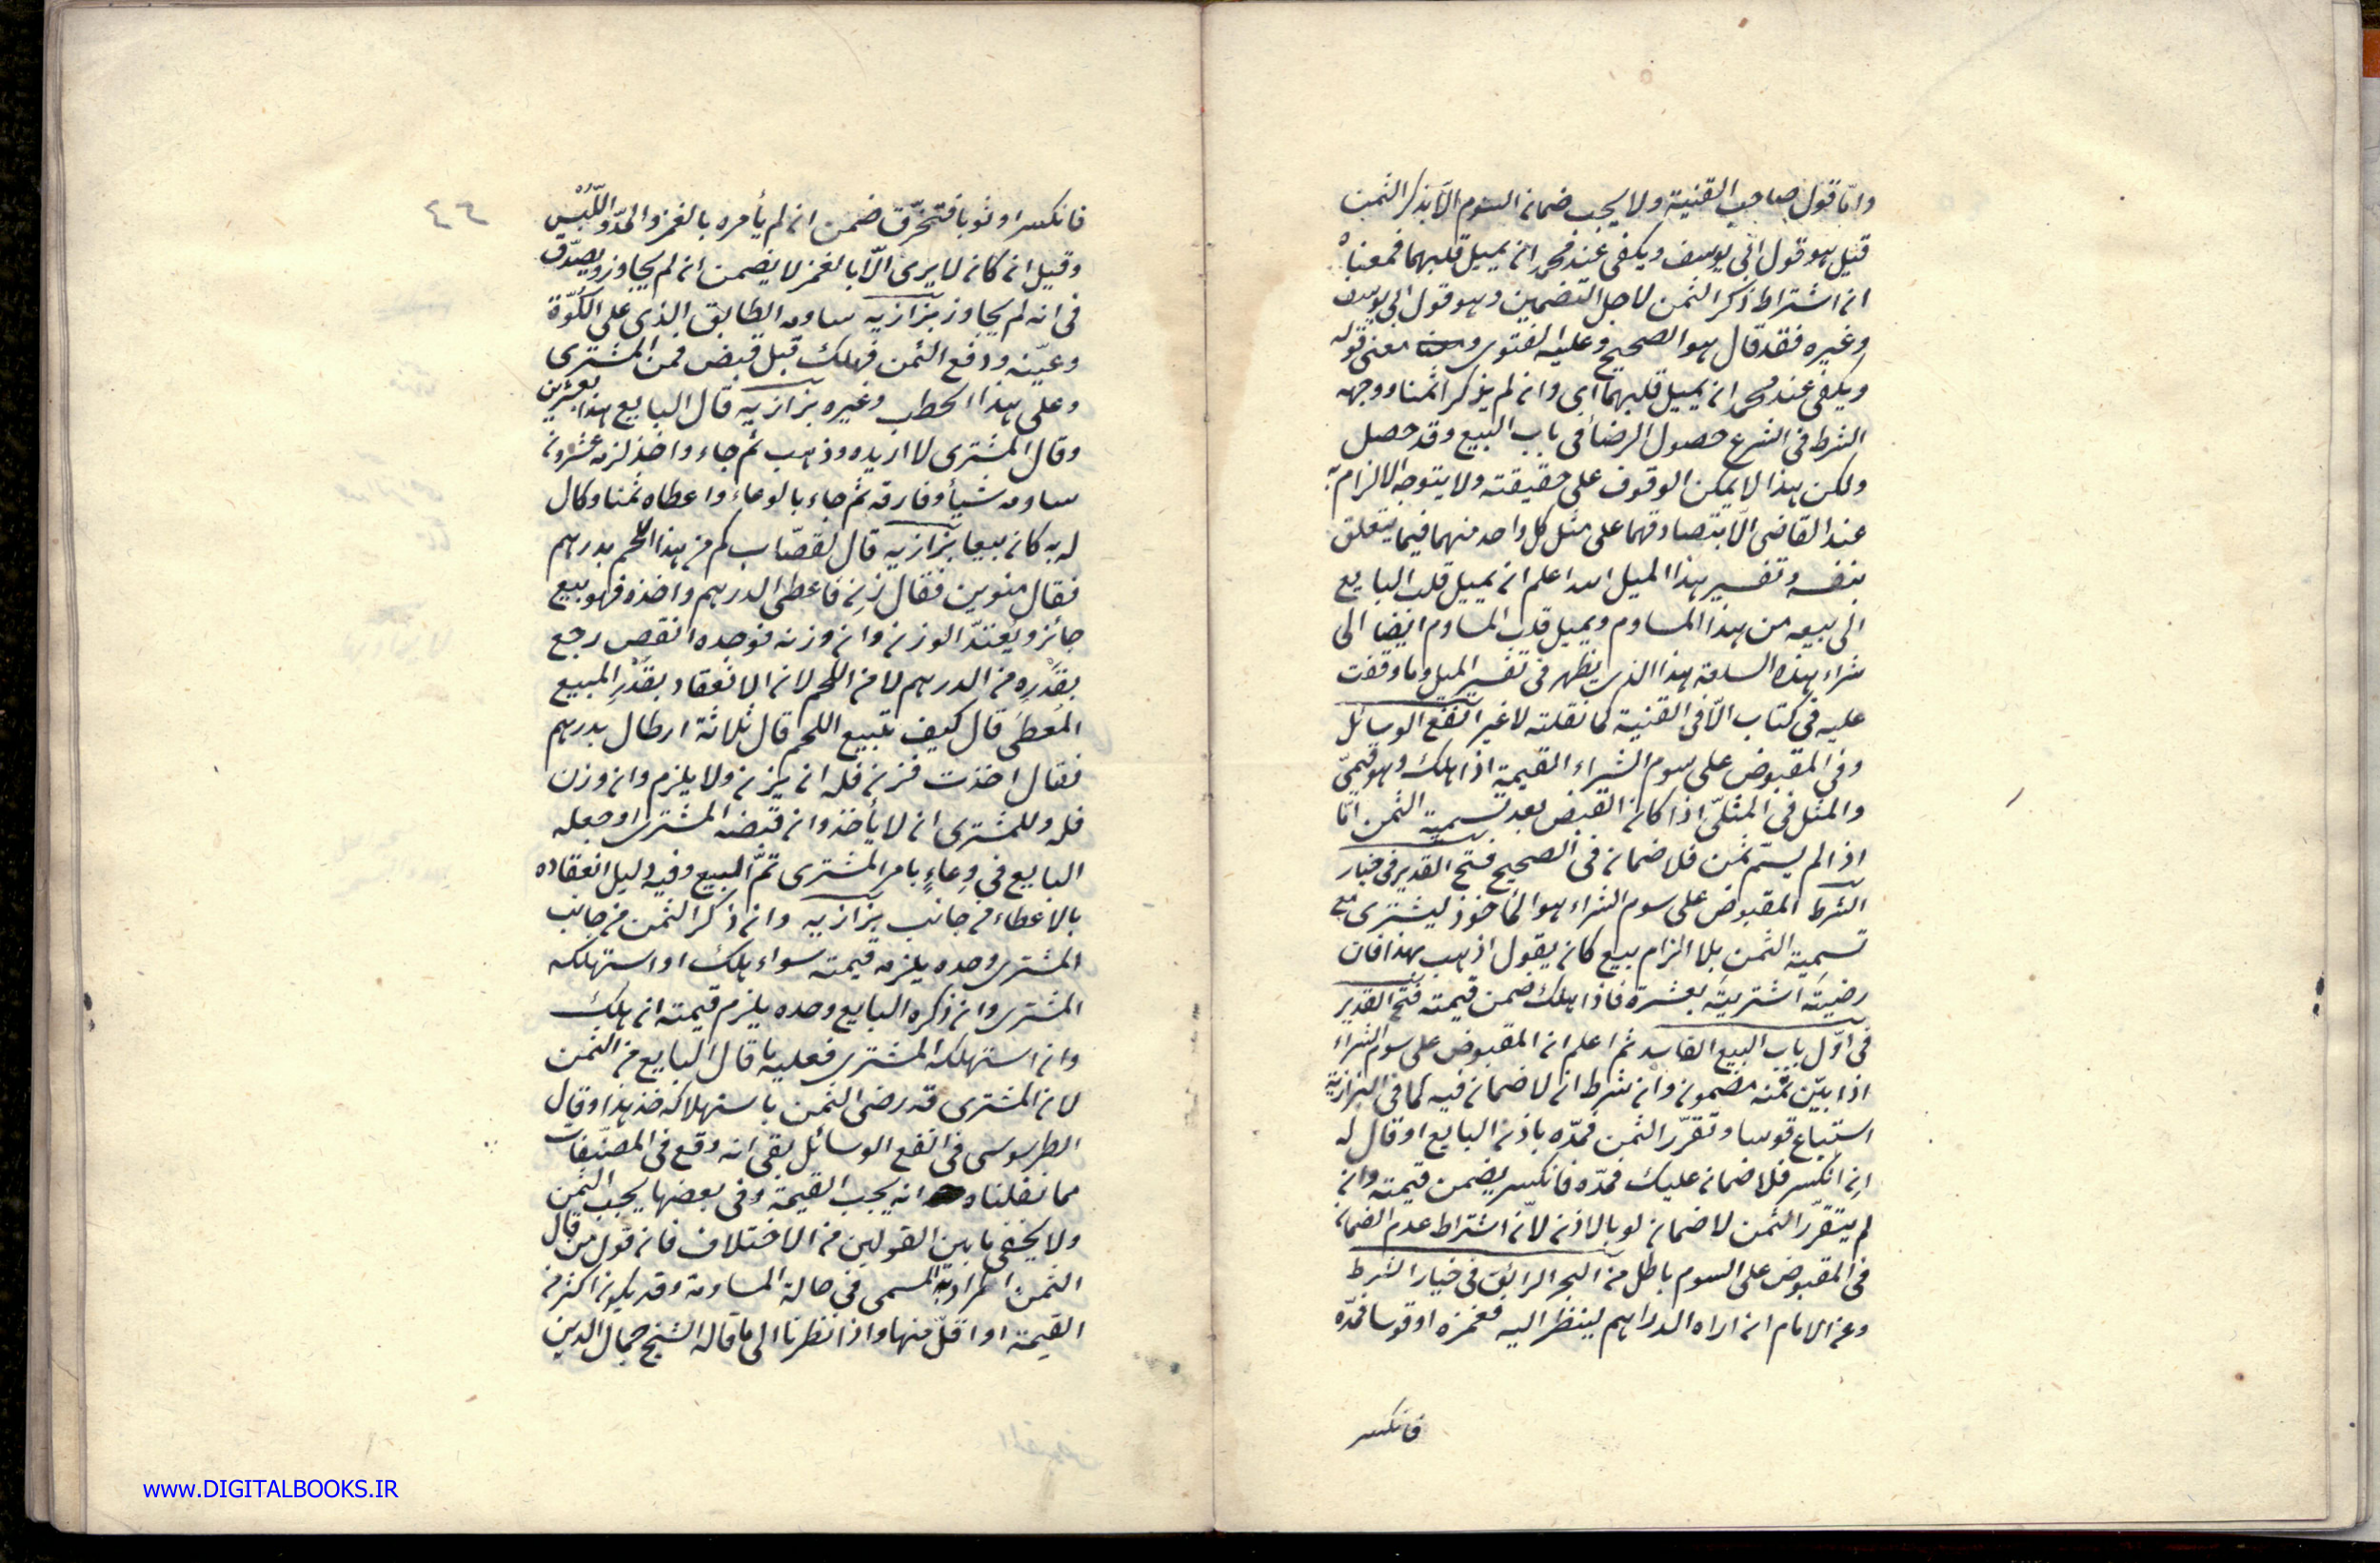 وامّا قول صاحب القنية ولا يجب ضمان السوم الّا بذكر الثمن
قيل هو قول ابى يوسف ويكفى عند محمد ان يميل قلبهما فمعناه
ان اشتراط ذكر الثمن لاجل التضمين وهو قول ابى يوسف
وغيره فقد قال هو الصحيح وعليه الفتوى معنى قوله
ويكفى عند محمد ان يميل قلبهما اى وان لم يذكر اثمنا ووجهه
الشرط فى الشرع حصول الرضاء فى باب البيع وقد حصل
ولكن هذا لا يمكن الوقوف على حقيقته ولا يتوجه الالزام به
عند القاضى الّا بتصادقهما على مثل كل واحد منهما فيما يتعلق
بنفسه وتفسير هذا الميل الله اعلم ان يميل قلب البايع
الى بيعه من هذا المساوم ويميل قلب المساوم ايضا الى
شراء هذه السلعة هذا الذى يظهر فى تفسير الميل وما وقفت
عليه فى كتاب الّا فى القنية كما نقلته لا غير انفع الوسائل
وفى المقبوض على سوم الشراء القيمة اذا هلك وهو قيمىّ
والمثل فى المثلىّ اذا كان القبض بعد تسمية الثمن امّا
اذا لم يسمّ ثمن فلا ضمان فى الصحيح فتح القدير فى خيار
الشرط المقبوض على سوم الشراء هو المأخوذ ليشترى مع
تسمية الثمن بلا الزام بيع كان يقول اذهب بهذا فان
رضيتَه اشتريتَه بعشرة فاذا هلك ضمن قيمته فتح القدير
فى اوّل باب البيع الفاسد ثم اعلم ان المقبوض على سوم الشراء
اذا بيّن ثمنه مضمون وان شرط ان لا ضمان فيه كما فى البزازية
استباع قوسا وتقرّر الثمن فمدّه باذن البايع او قال له
ان انكسر فلا ضمان عليك فمدّه فانكسر يضمن قيمته وان
لم يتقرّر الثمن لا ضمان لو بالاذن لانّ اشتراط عدم الضمان
فى المقبوض على السوم باطل من البحر الرائق فى خيار الشرط
وعن الامام ان اراه الدراهم لينظر اليه فغمزه او قوسا فمدّه
فانكسر
٤٦
فانكسر او ثوبا فتخرّق ضمن ان لم يأمره بالغمز والمدّ واللّبس
وقيل ان كان لا يرى الّا بالغمز لا يضمن ان لم يجاوز ويصدّق
فى انه لم يجاوز بزازيه ساومه الطابق الذى على الكوّة
وعيّنه ودفع الثمن فهلك قبل قبض فمن المشترى
وعلى هذا الحطب وغيره بزازيه قال البايع هذا بعشرين
وقال المشترى لا ازيده وذهب ثم جاء واخذ لزمه عشرون
ساومه شيأ وفارقه ثم جاء بالوعاء واعطاه ثمنا وكال
له به كان بيعا بزازيه قال لقصّاب كم من هذا اللحم بدرهم
فقال منوين فقال زِن فاعطى الدرهم واخذه فهو بيع
جائز ويعتدّ الوزن وان وزنه فوجده انقص رجع
بقدره من الدرهم لا من اللحم لان الانعقاد بقدر المبيع
المُعطى قال كيف تبيع اللحم قال ثلاثة ارطال بدرهم
فقال اخذت فزن فله ان يزن ولا يلزم وان وزن
فله وللمشترى ان لا يأخذ وان قبضه المشترى او جعله
البايع فى وِعاءٍ بامر المشترى تمّ البيع وفيه دليل انعقاده
بالاعطاء من جانب بزازيه وان ذكر الثمن من جانب
المشترى وحده يلزمه قيمته سواء هلك او استهلكه
المشترى وان ذكره البايع وحده يلزم قيمته ان هلك
وان استهلكه المشترى فعليه ما قال البايع من الثمن
لان المشترى قد رضى الثمن باستهلاكه خذ هذا وقال
الطرسوسى فى انفع الوسائل بقى انه وقع فى المصنّفات
مما نقلناه انه يجب القيمة وفى بعضها يجب الثمن
ولا يخفى ما بين القولين من الاختلاف فان قول من قال
الثمن المراد به المسمى فى حالة المساومة وقد يكون اكثر من
القيمة او اقلّ منها واذا نظرنا الى ما قاله الشيخ جمال الدين
www.DIGITALBOOKS.IR